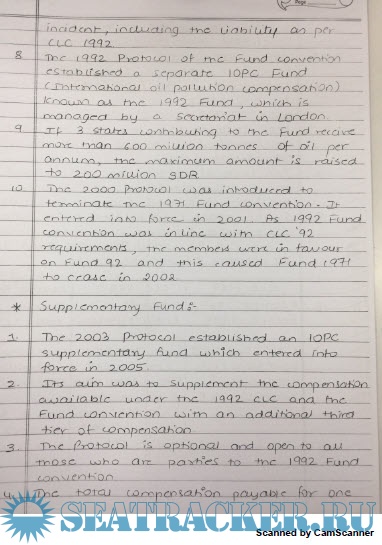 Page
incident, including the liability as per
CLC 1992
8 The 1992 Protocol of the Fund convention
established a separate IOPC Fund
(International oil pollution compensation)
known as the 1992 Fund, which is
managed by a secretariat in London.
9 If 3 states contributing to the Fund receive
more than 600 million tonnes of oil per
annum, the maximum amount is raised
to 200 million SDR
10. The 2000 Protocol was introduced to
terminate the 1971 Fund convention. It
entered into force in 2001. As 1992 Fund
convention was inline with CLC '92
requirements, the members were in favour
on Fund 92 and this caused Fund 1971
to cease in 2002
* Supplementary Fund:-
1. The 2003 Protocol established an IOPC
supplementary fund which entered into
force in 2005.
2. Its aim was to supplement the compensation
available under the 1992 CLC and the
Fund convention with an additional third
tier of compensation
3. The Protocol is optional and open to all
those who are parties to the 1992 Fund
convention
4. The total compensation payable for one
SEATRACKER.RU
Scanned by CamScanner